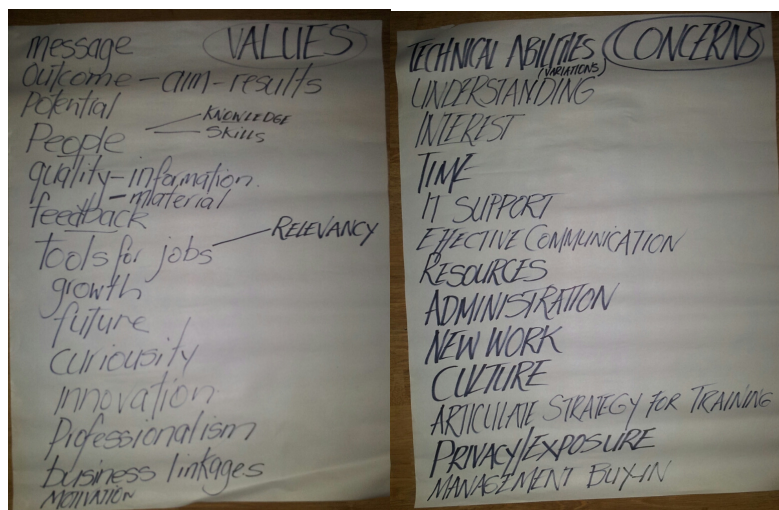 VALUES
message
outcome - aim - results
potential
People
KNOWLEDGE
SKILLS
quality - information
- material
feedback
tools for jobs
RELEVANCY
growth
future
curiousity
innovation
Professionalism
business linkages
MOTIVATION
CONCERNS
TECHNICAL ABILITIES
(VARIATIONS)
UNDERSTANDING
INTEREST
TIME
IT SUPPORT
EFFECTIVE COMMUNICATION
RESOURCES
ADMINISTRATION
NEW WORK
CULTURE
ARTICULATE STRATEGY FOR TRAINING
PRIVACY/EXPOSURE
MANAGEMENT BUY-IN